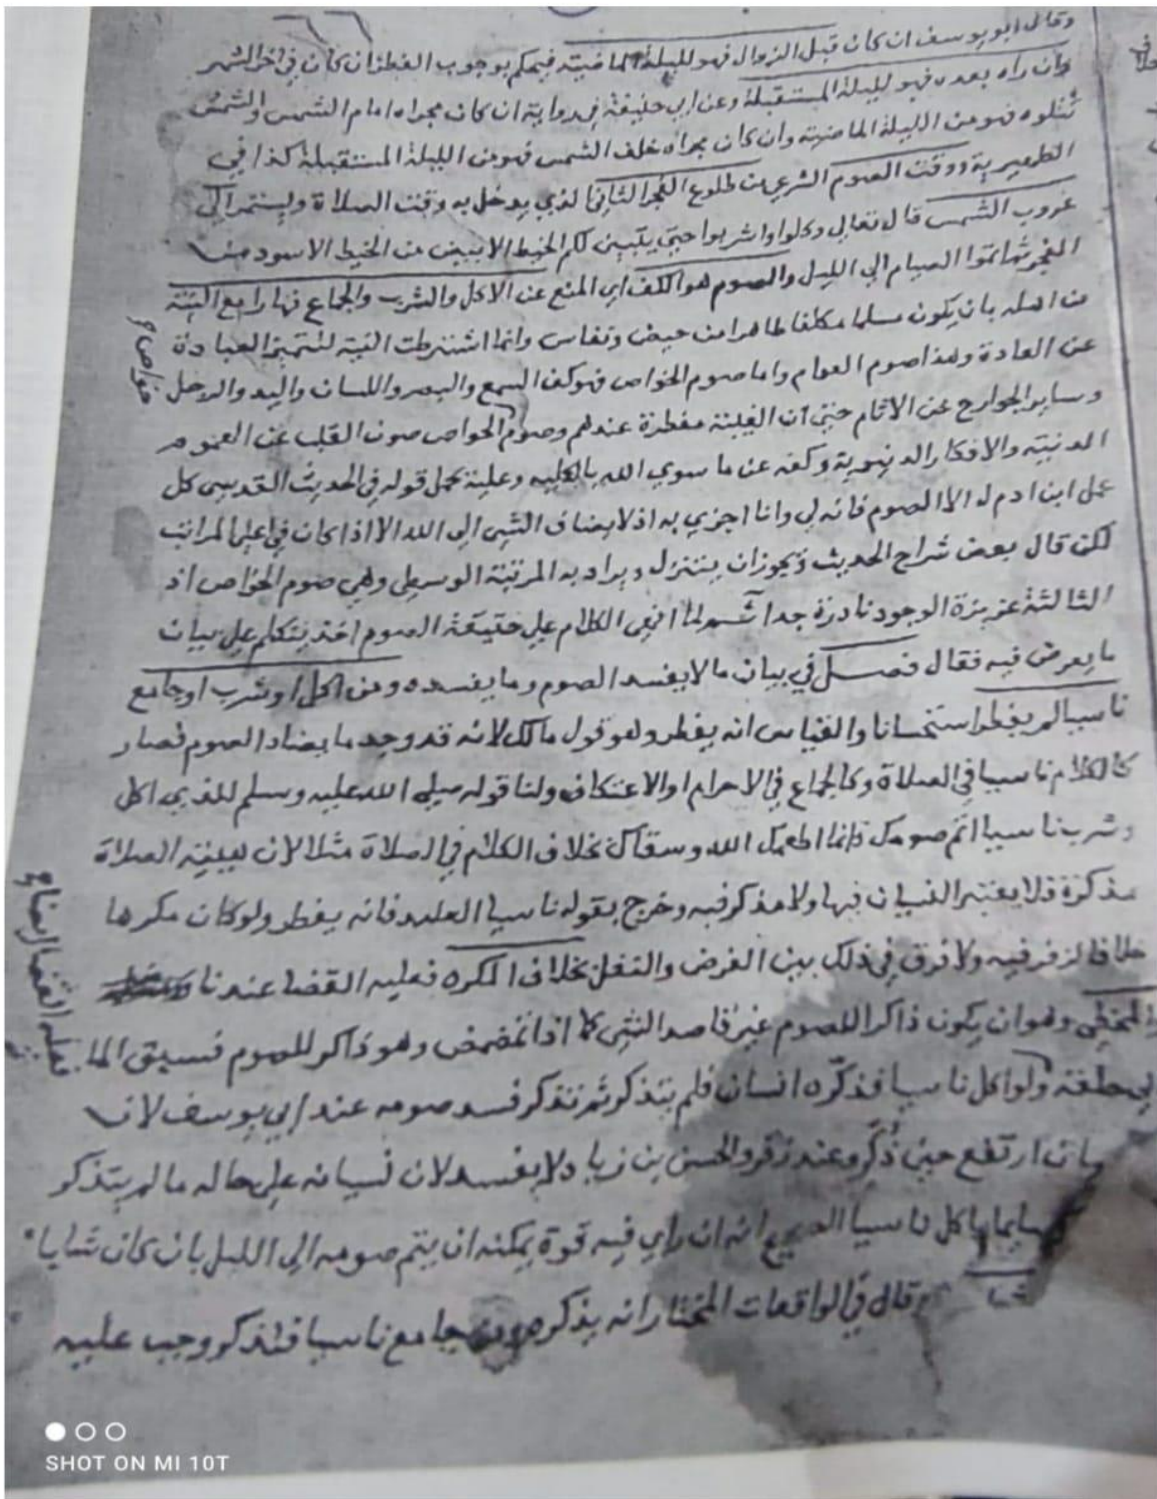 وقال ابو يوسف ان كان قبل الزوال فهو لليلة الماضية فيحكم بوجوب الفطر ان كان في اخر الشهر
وان راه بعده فهو لليلة المستقبلة وعن ابي حنيفة في رواية ان كان مجراه امام الشمس والشمس
تتلوه فهو من الليلة الماضية وان كان مجراه خلف الشمس فهو من الليلة المستقبلة كذا في
الظهيرية ووقت الصوم الشرعي من طلوع الفجر الثاني الذي يدخل به وقت الصلاة ويستمر الي
غروب الشمس قال تعالي وكلوا واشربوا حتي يتبين لكم الخيط الابيض من الخيط الاسود من
الفجر ثم اتموا الصيام الي الليل والصوم هو الكف اي المنع عن الاكل والشرب والجماع نهارا مع النية
من اهله بان يكون مسلما مكلفا طاهرا من حيض ونفاس وانما اشترطت النية لتتميز العبادة
عن العادة وهذا صوم العوام واما صوم الخواص فهو كف السمع والبصر واللسان واليد والرجل
وساير الجوارح عن الاثام حتي ان الغيبة مفطرة عندهم وصوم الخواص صون القلب عن الهموم
الدنية والافكار الدنيوية وكفه عن ما سوي الله بالكلية وعليه يحمل قوله في الحديث القدسي كل
عمل ابن ادم له الا الصوم فانه لي وانا اجزي به اذ لا يضاف الشي الي الله الا اذا كان في اعلي المراتب
لكن قال بعض شراح الحديث ويجوز ان يتنزل ويراد به المرتبة الوسطي وهي صوم الخواص اذ
الثالثة عزيزة الوجود نادرة جدا ثم لما انهي الكلام علي حقيقة الصوم اخذ يتكلم علي بيان
ما يعرض فيه فقال فصل في بيان ما لا يفسد الصوم وما يفسده ومن اكل او شرب او جامع
ناسيا لم يفطر استحسانا والقياس انه يفطر وهو قول مالك لانه قد وجد ما يضاد الصوم فصار
كالكلام ناسيا في الصلاة وكالجماع في الاحرام او الاعتكاف ولنا قوله صلي الله عليه وسلم للذي اكل
وشرب ناسيا اتم صومك فانما اطعمك الله وسقاك بخلاف الكلام في الصلاة مثلا لان هيئة الصلاة
مذكرة فلا يعتبر النسيان فيها ولا مذكر فيه وخرج بقوله ناسيا العامد فانه يفطر ولو كان مكرها
خلافا لزفر فيه ولا فرق في ذلك بين الفرض والنفل بخلاف المكره فعليه القضا عندنا
والمخطي وهو ان يكون ذاكرا للصوم غير قاصد الشي كما اذا تمضمض وهو ذاكر للصوم فسبق الما
الي حلقه ولو اكل ناسيا فذكره انسان فلم يتذكر ثم تذكر فسد صومه عند ابي يوسف لان
ارتفع حين ذكر وعند زفر والحسن بن زياد لا يفسد لان نسيانه علي حاله ما لم يتذكر
صايما ياكل ناسيا الصحيح انه ان راي فيه قوة يمكنه ان يتم صومه الي الليل بان كان شابا
وقال في الواقعات المختار انه يذكره جامع ناسيا فتذكر وجب عليه
خواص
فعليه القضا